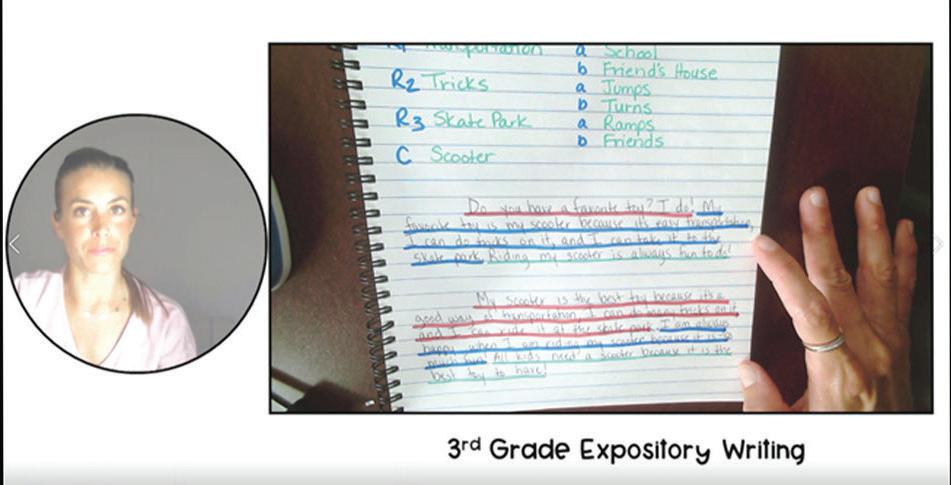 Transportation a School
b Friend's House
R2 Tricks a Jumps
b Turns
R3 Skate Park a Ramps
b Friends
C Scooter
Do you have a favorite toy? I do! My
favorite toy is my scooter because it's easy transportation,
I can do tricks on it, and I can take it to the
skate park. Riding my scooter is always fun to do!
My scooter is the best toy because it's a
good way of transportation, I can do many tricks on it,
and I can ride it at the skate park. I am always
happy when I am riding my scooter because it is so
much fun! All kids need a scooter because it is the
best toy to have!
3rd Grade Expository Writing